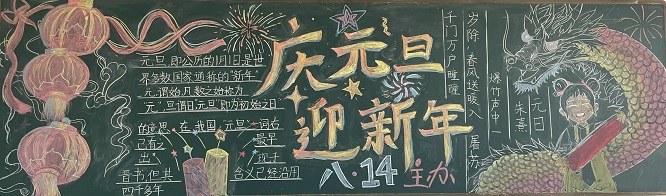 元旦，即公历的1月1日是世
界多数国家通称的"新年"
元，谓始，凡数之始称为
"元"，旦谓日"元旦"即为初始之日
的意思。在我国，"元旦"一词古
已有之 最早
出 现于
晋书但其 含义已经沿用
四千多年
庆元旦
迎新年
八·14主办
元日
朱熹
爆竹声中一
岁除，春风送暖入
屠苏
千门万户曈曈